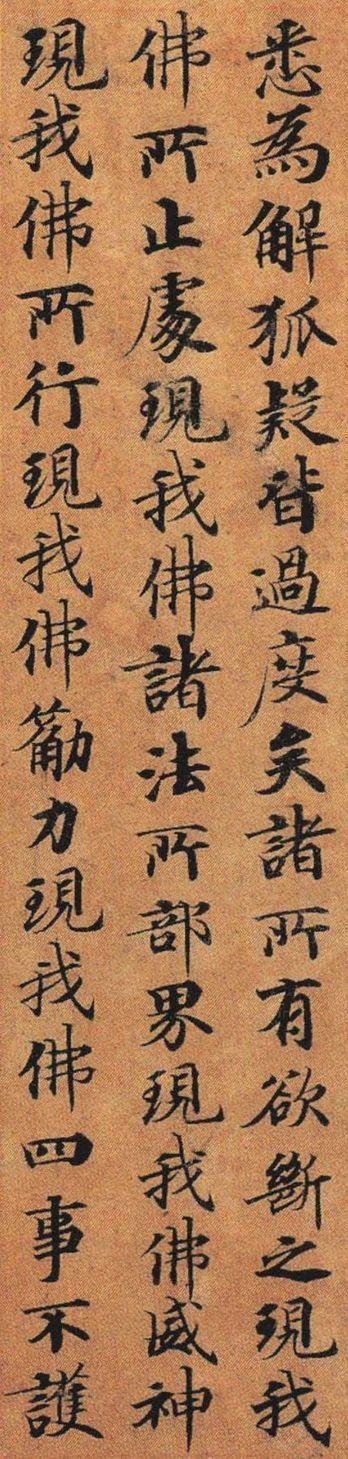 悉為解狐疑皆過度矣諸所有欲斷之現我
佛所止處現我佛諸法所部界現我佛威神
現我佛所行現我佛筋力現我佛四事不護